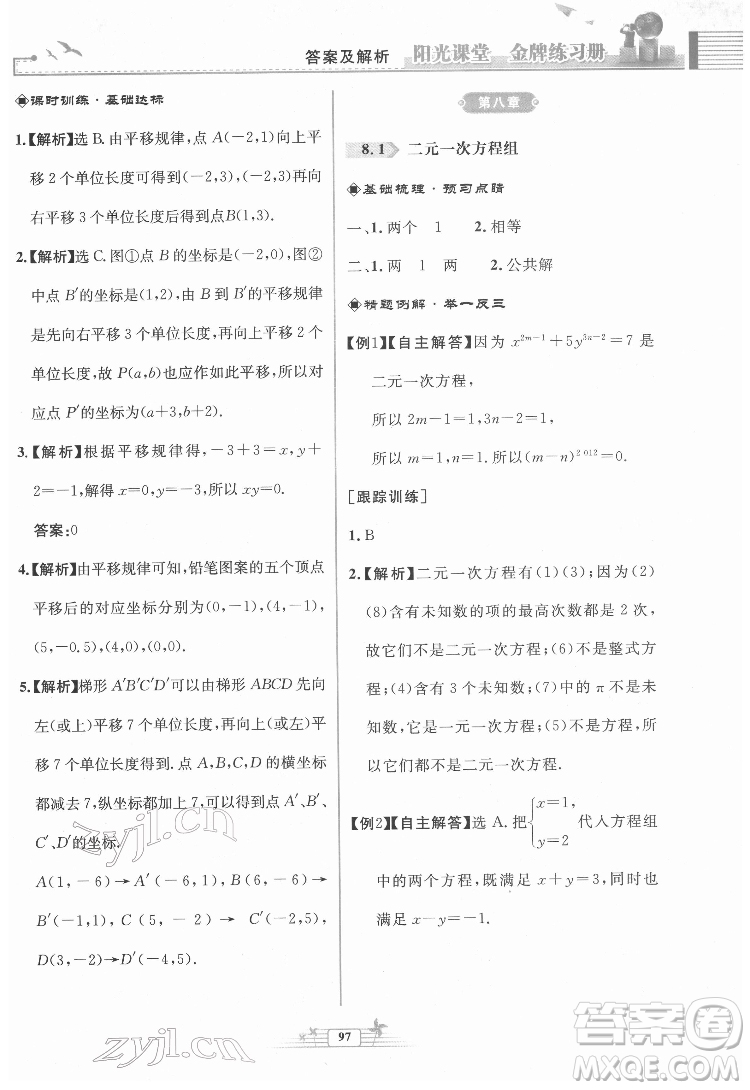 答案及解析 阳光课堂 金牌练习册
课时训练·基础达标
1.【解析】选 B. 由平移规律,点 A(－2,1)向上平
移 2 个单位长度得到(－2,3),(－2,3)再向
右平移 3 个单位长度后得到点B(1,3).
2.【解析】选 C. 图①点 B 的坐标是(－2,0),图②
中点 B′的坐标是(1,2),所以 B 到 B′的平移规律
是先向右平移 3 个单位长度,再向上平移 2 个
单位长度,故 P(a,b)也应作如此平移,所以对
应点 P′的坐标为(a＋3,b＋2).
3.【解析】根据平移规律得,－3＋3＝x,y＋
2＝－1,解得 x＝0,y＝－3,所以 xy＝0.
答案:0
4.【解析】由平移规律可知,铅笔图案的五个顶点
平移后的对应坐标分别为(0,－1),(4,－1),
(5,－0.5),(4,0),(0,0).
5.【解析】梯形 A′B′C′D′可以由梯形 ABCD 先向
左(或上)平移 7 个单位长度,再向上(或左)平
移 7 个单位长度得到. 点 A,B,C,D 的横坐标
都减去 7,纵坐标都加上 7,可以得到点 A′、B′、
C′、D′的坐标.
A(1,－6)→A′(－6,1),B(6,－6)→
B′(－1,1),C(5,－2)→C′(－2,5),
D(3,－2)→D′(－4,5).
第八章
8.1 二元一次方程组
基础梳理·预习点睛
一、1. 两个 1 2. 相等
二、1. 两 1 两 2. 公共解
精题例解·举一反三
【例1】【自主解答】因为 x²ᵐ⁻¹＋5y³ⁿ⁻²＝7 是
二元一次方程,
所以 2m－1＝1,3n－2＝1,
所以 m＝1,n＝1. 所以(m－n)²⁰¹²＝0.
[跟踪训练]
1. B
2.【解析】二元一次方程有(1)(3);因为(2)
(8)含有未知数的项的最高次数都是 2 次,
故它们不是二元一次方程;(6)不是整式方
程;(4)含有 3 个未知数;(7)中的 π 不是未
知数,只含有 1 个未知数;(5)不是方程,所
以它们都不是二元一次方程.
【例2】【自主解答】选 A. 把{x＝1, y＝2 代入方程组
中的两个方程,既满足 x＋y＝3,同时也
满足 x－y＝－1.
97
zyjl.cn
zyjl.cn
答案圈
MXQE.COM